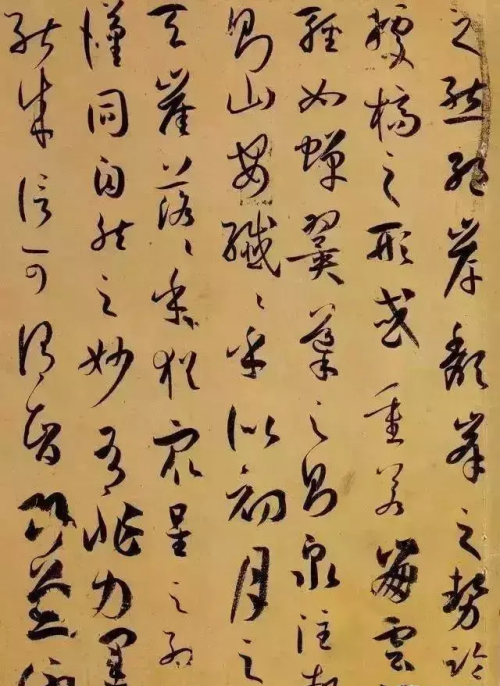 之態絕岸頹峰之勢臨
據槁之形或重若崩雲
輕如蟬翼導之則泉注頓
則山安纖〻乎似初月之
天崖落〻乎猶眾星之列
漢同自然之妙有非力運
能成信可謂智巧兼優